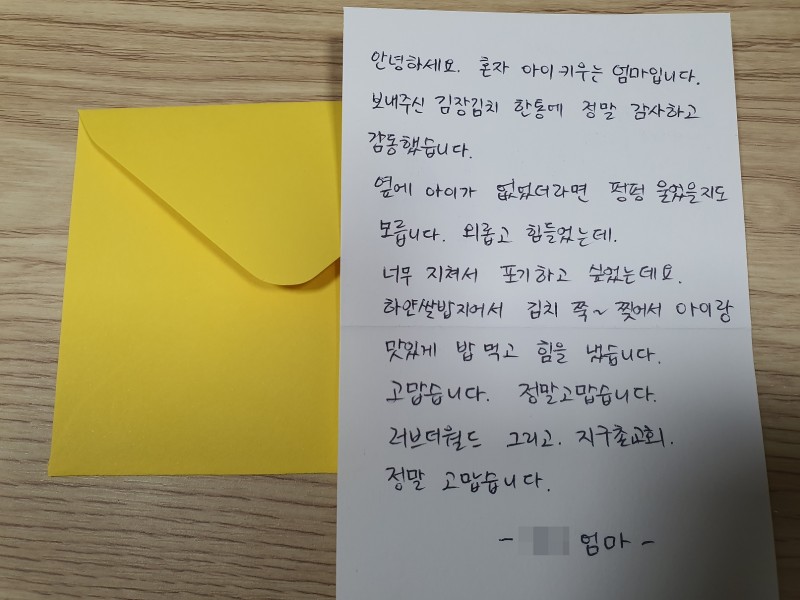 안녕하세요. 혼자 아이 키우는 엄마입니다.
보내주신 김장김치 한통에 정말 감사하고
감동했습니다.
옆에 아이가 없었더라면 펑펑 울었을지도
모릅니다. 외롭고 힘들었는데.
너무 지쳐서 포기하고 싶었는데요.
하얀쌀밥지어서 김치 쭉~ 찢어서 아이랑
맛있게 밥 먹고 힘을 냈습니다.
고맙습니다. 정말고맙습니다.
러브더월드 그리고. 지구촌교회.
정말 고맙습니다.
- 엄마 -